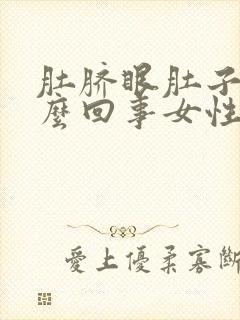 肚脐眼肚子
麼回事女性
愛上優柔寡斷